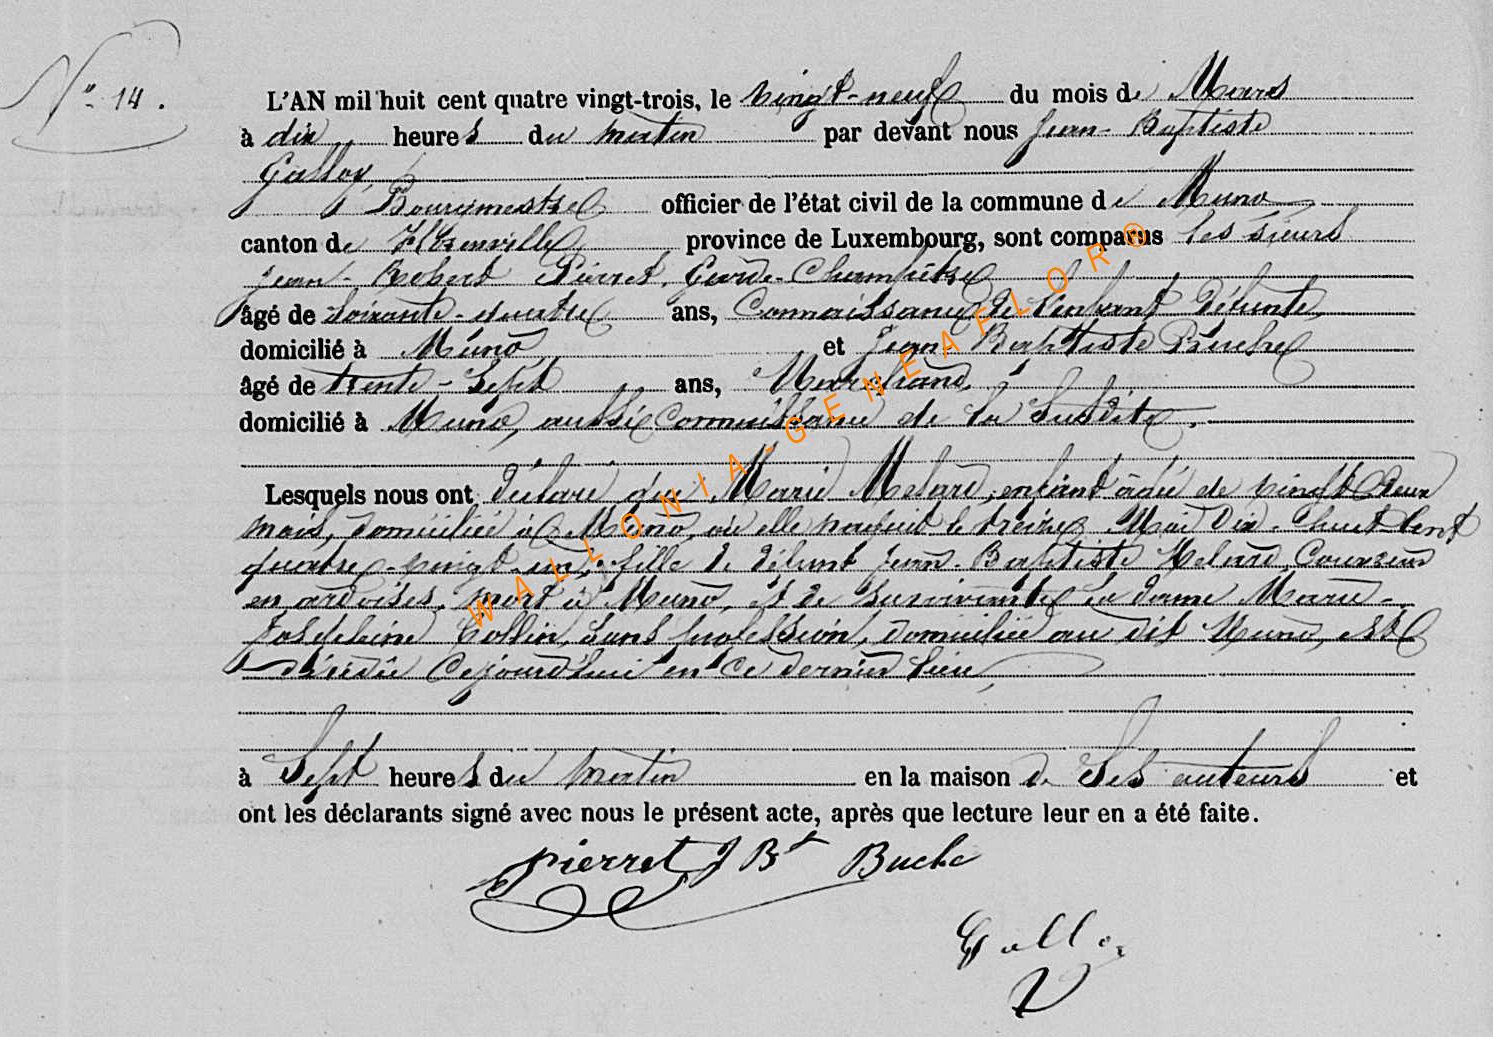 N° 14.
L'AN mil huit cent quatre vingt-trois, le vingt-neuf du mois de Mars
à dix heures du matin par devant nous Jean-Baptiste
Galloy,
Bourgmestre officier de l'état civil de la commune de Muno
canton de Florenville province de Luxembourg, sont comparus les sieurs
Jean-Robert Pierret, Garde-Champêtre
âgé de soixante-quatre ans, Connaissance de l'enfant défunte,
domicilié à Muno, et Jean-Baptiste
âgé de trente-sept ans, Marchand,
domicilié à Muno, aussi Connaissance de la susdite.
Lesquels nous ont déclaré que Marie Melard, enfant âgée de vingt deux
mois, domiciliée à Muno, où elle naquit le treize Mai dix-huit cent
quatre-vingt-un, fille de défunt Jean-Baptiste Melard, Couvreur
en ardoises, mort à Muno, et de survivante la dame Marie-
Joséphine Collin, sans profession, domiciliée au dit Muno, est
décédée cejourd'hui en ce dernier lieu,
à sept heures du matin en la maison de ses auteurs et
ont les déclarants signé avec nous le présent acte, après que lecture leur en a été faite.
Pierret J Bt Buche
Gallo
WALLONIA-GENEAFLOR®